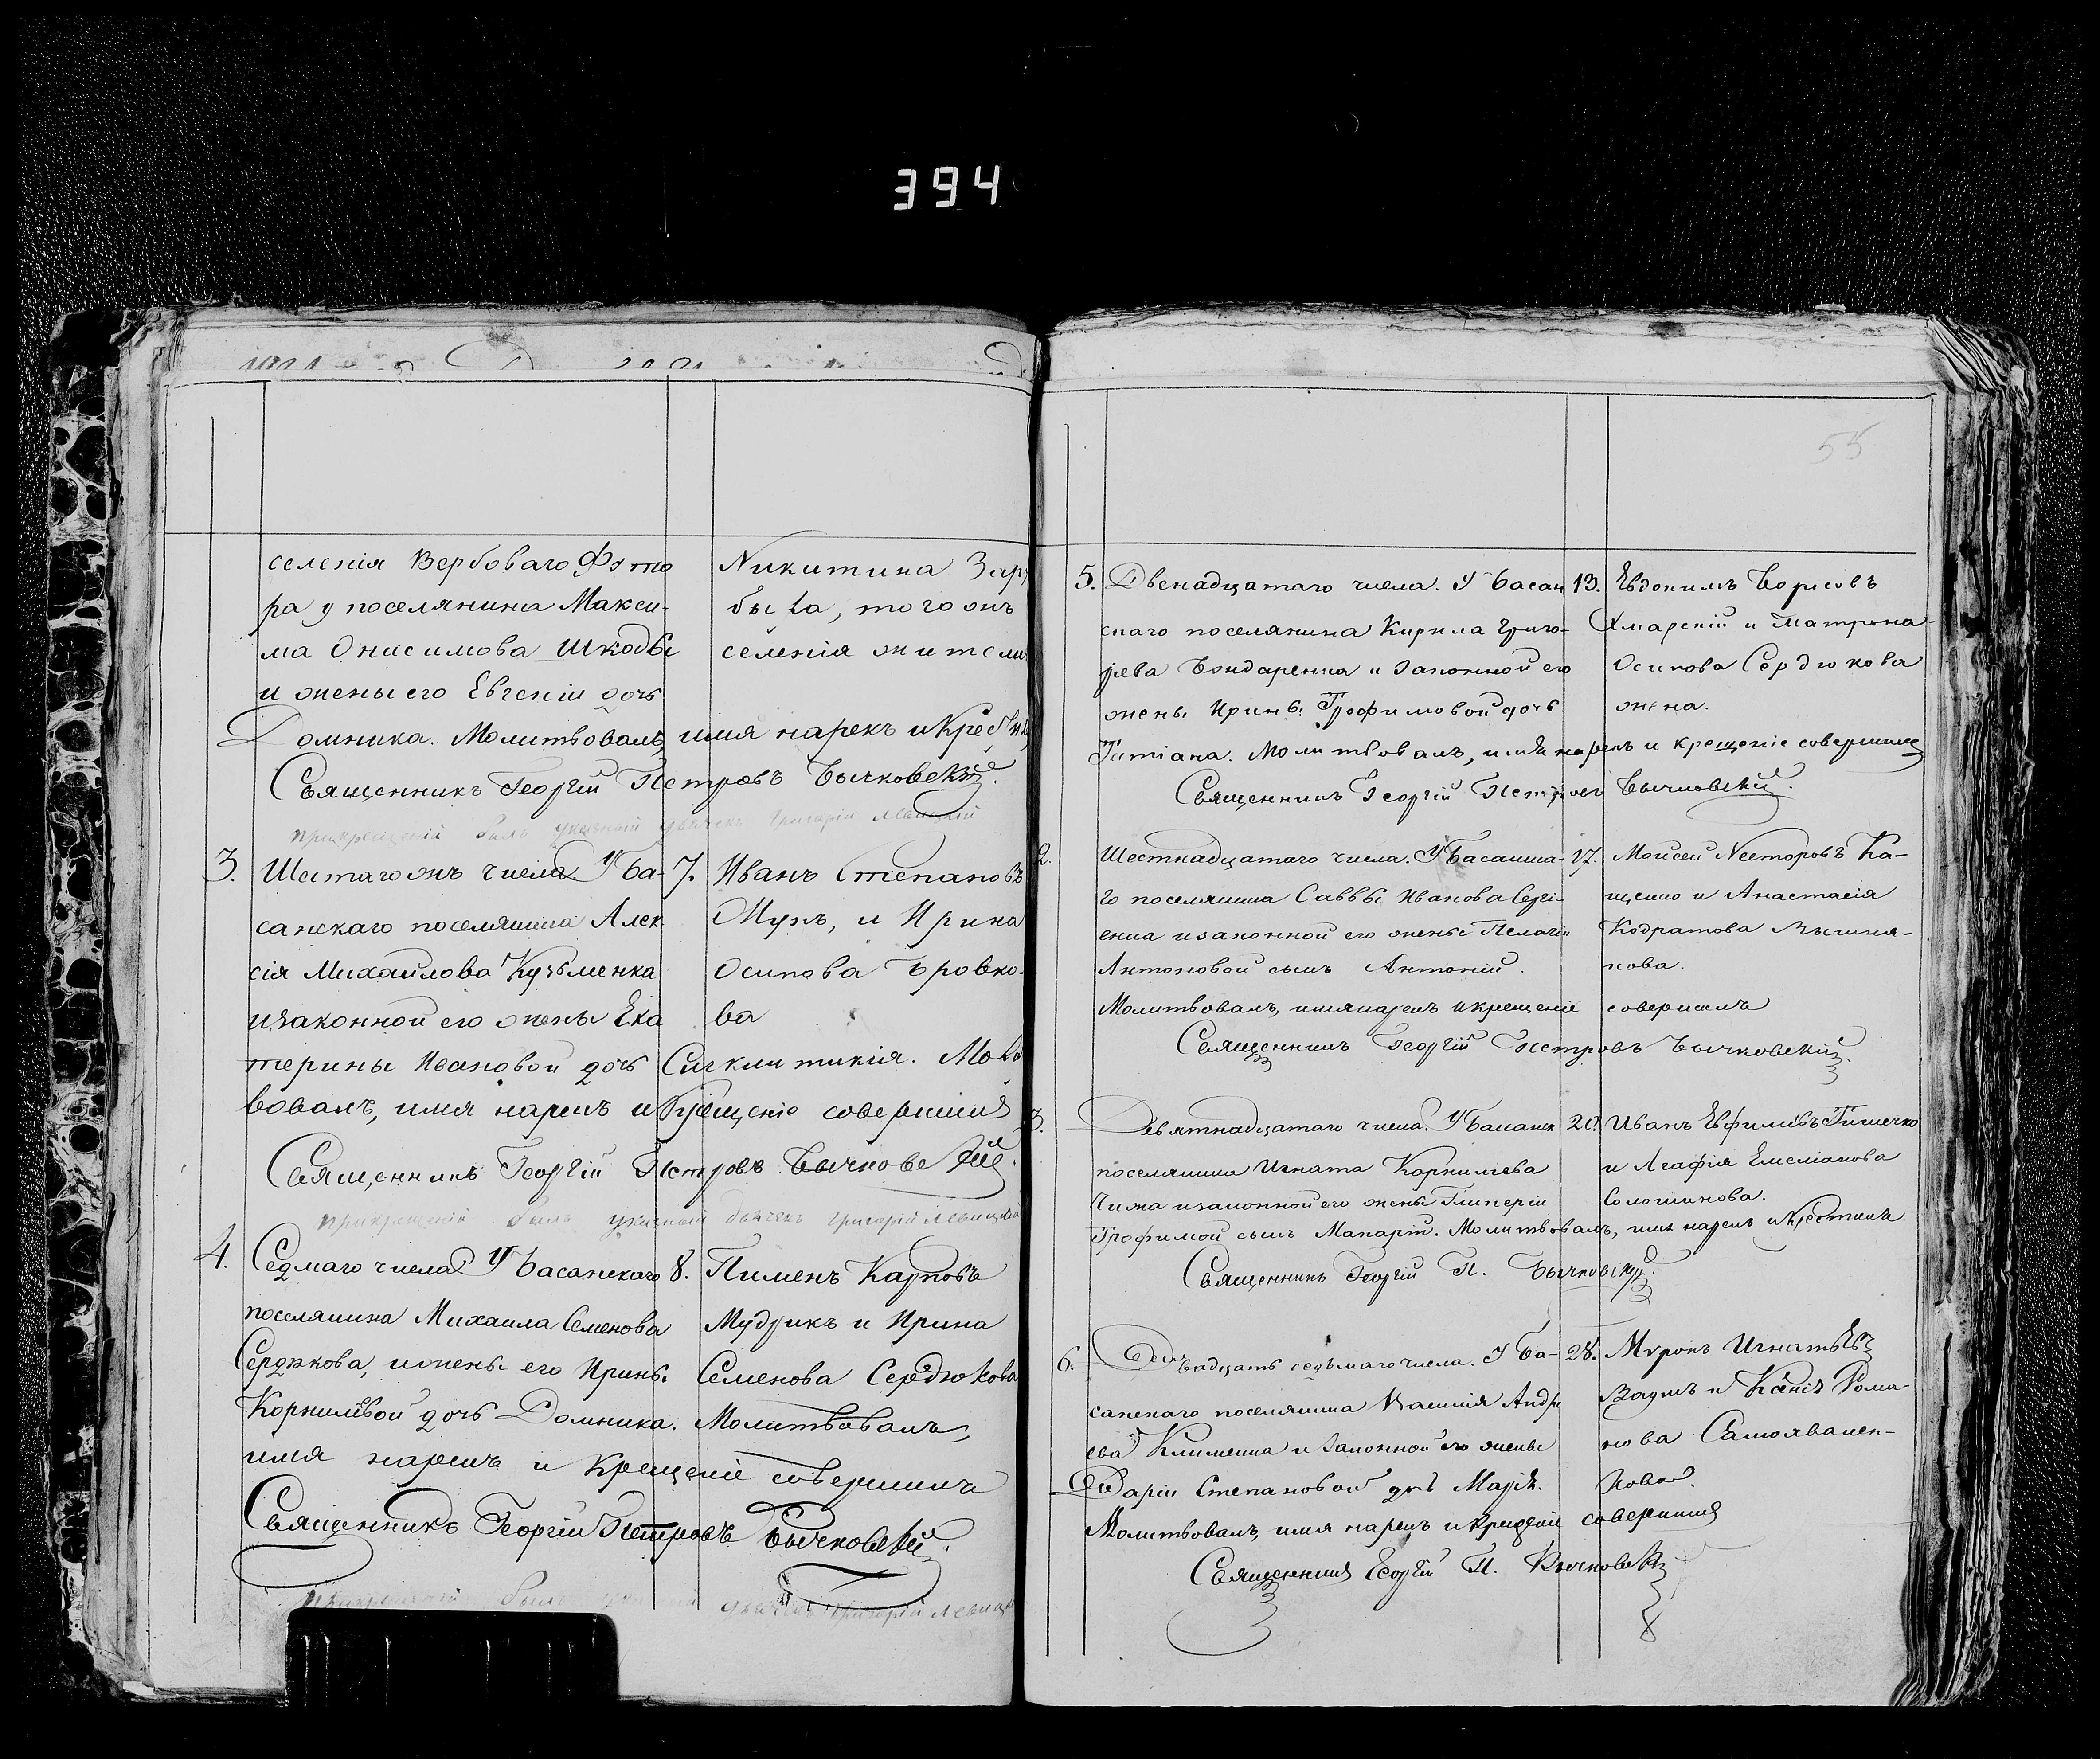 394
55
селенія Вербоваго Фэто
ра у поселянина Макси-
ма Онисимова Шкоды
и жены его Евгеніи дочь
Домника. Молитвовалъ, имя нарекъ и
Священникъ Георгій Петровъ Бычковскій.
при крещеніи былъ указный дьячекъ Григорій Левицкій
Никитина
того жъ
селенія жители
3. Шестаго жъ числа. У Ба- 7.
санскаго поселянина Алек
сія Михайлова Кузьменка
и законной его жены Ека
терины Ивановой дочь Сигклитикія.
вовалъ, имя нарекъ и крещеніе совершилъ
Священникъ Георгій Петровъ Бычковскій.
при крещеніи былъ указный дьячекъ Григорій Левицкій
Иванъ Степановъ
Мухъ, и Ирина
Осипова Боровко-
ва
4. Седмаго числа. У Басанскаго 8.
поселянина Михаила Семенова
Сердюкова, и жены его Ирины
Корниліевой дочь Домника. Молитвовалъ,
имя нарекъ и крещеніе совершилъ
Священникъ Георгій Петровъ Бычковскій.
былъ дьячекъ Григорій Левицкій
Пименъ Карповъ
Мудрикъ и Ирина
Семенова Середюкова
5. Двенадцатаго числа. У Басан 13.
скаго поселянина Кирила Григо-
рева Бондаренка и законной его
жены Ирины Трофимовой дочь
Татіана. Молитвовалъ, имя нарекъ и крещеніе совершилъ
Священникъ Георгій Петровъ Бычковскій.
Евдокимъ Борисовъ
Хмарскій и Матрона
Осипова Сердюкова
жена.
2. Шестнадцатаго числа. У Басанска- 17.
го поселянина Саввы Иванова Сергі-
енка и законной его жены Пелагіи
Антоновой сынъ Антоній.
Молитвовалъ, имя нарекъ и крещеніе совершилъ
Священникъ Георгій Петровъ Бычковскій.
Моисей Несторовъ Ка-
щенко и Анастасія
Кодратова
нова.
3. Девятнадцатаго числа. У Басанск 20.
поселянина Игната Корниліева
Чижа и законной его жены Гликеріи
Трофимой сынъ Макарій. Молитвовалъ, имя нарекъ и крестилъ
Священникъ Георгій П. Бычковскій.
Иванъ Евфимовъ
и Агафія Емеліанова
Соломинова.
6. Двадцать седьмаго числа. У Ба- 28.
санскаго поселянина Василія Андре
ева Клименка и законной его жены
Даріи Степановой дочь Марія.
Молитвовалъ, имя нарекъ и крещеніе совершилъ
Священникъ Георгій П. Бычковскій
Миронъ Игнатьевъ
и Ксенія Рома-
нова
кова.